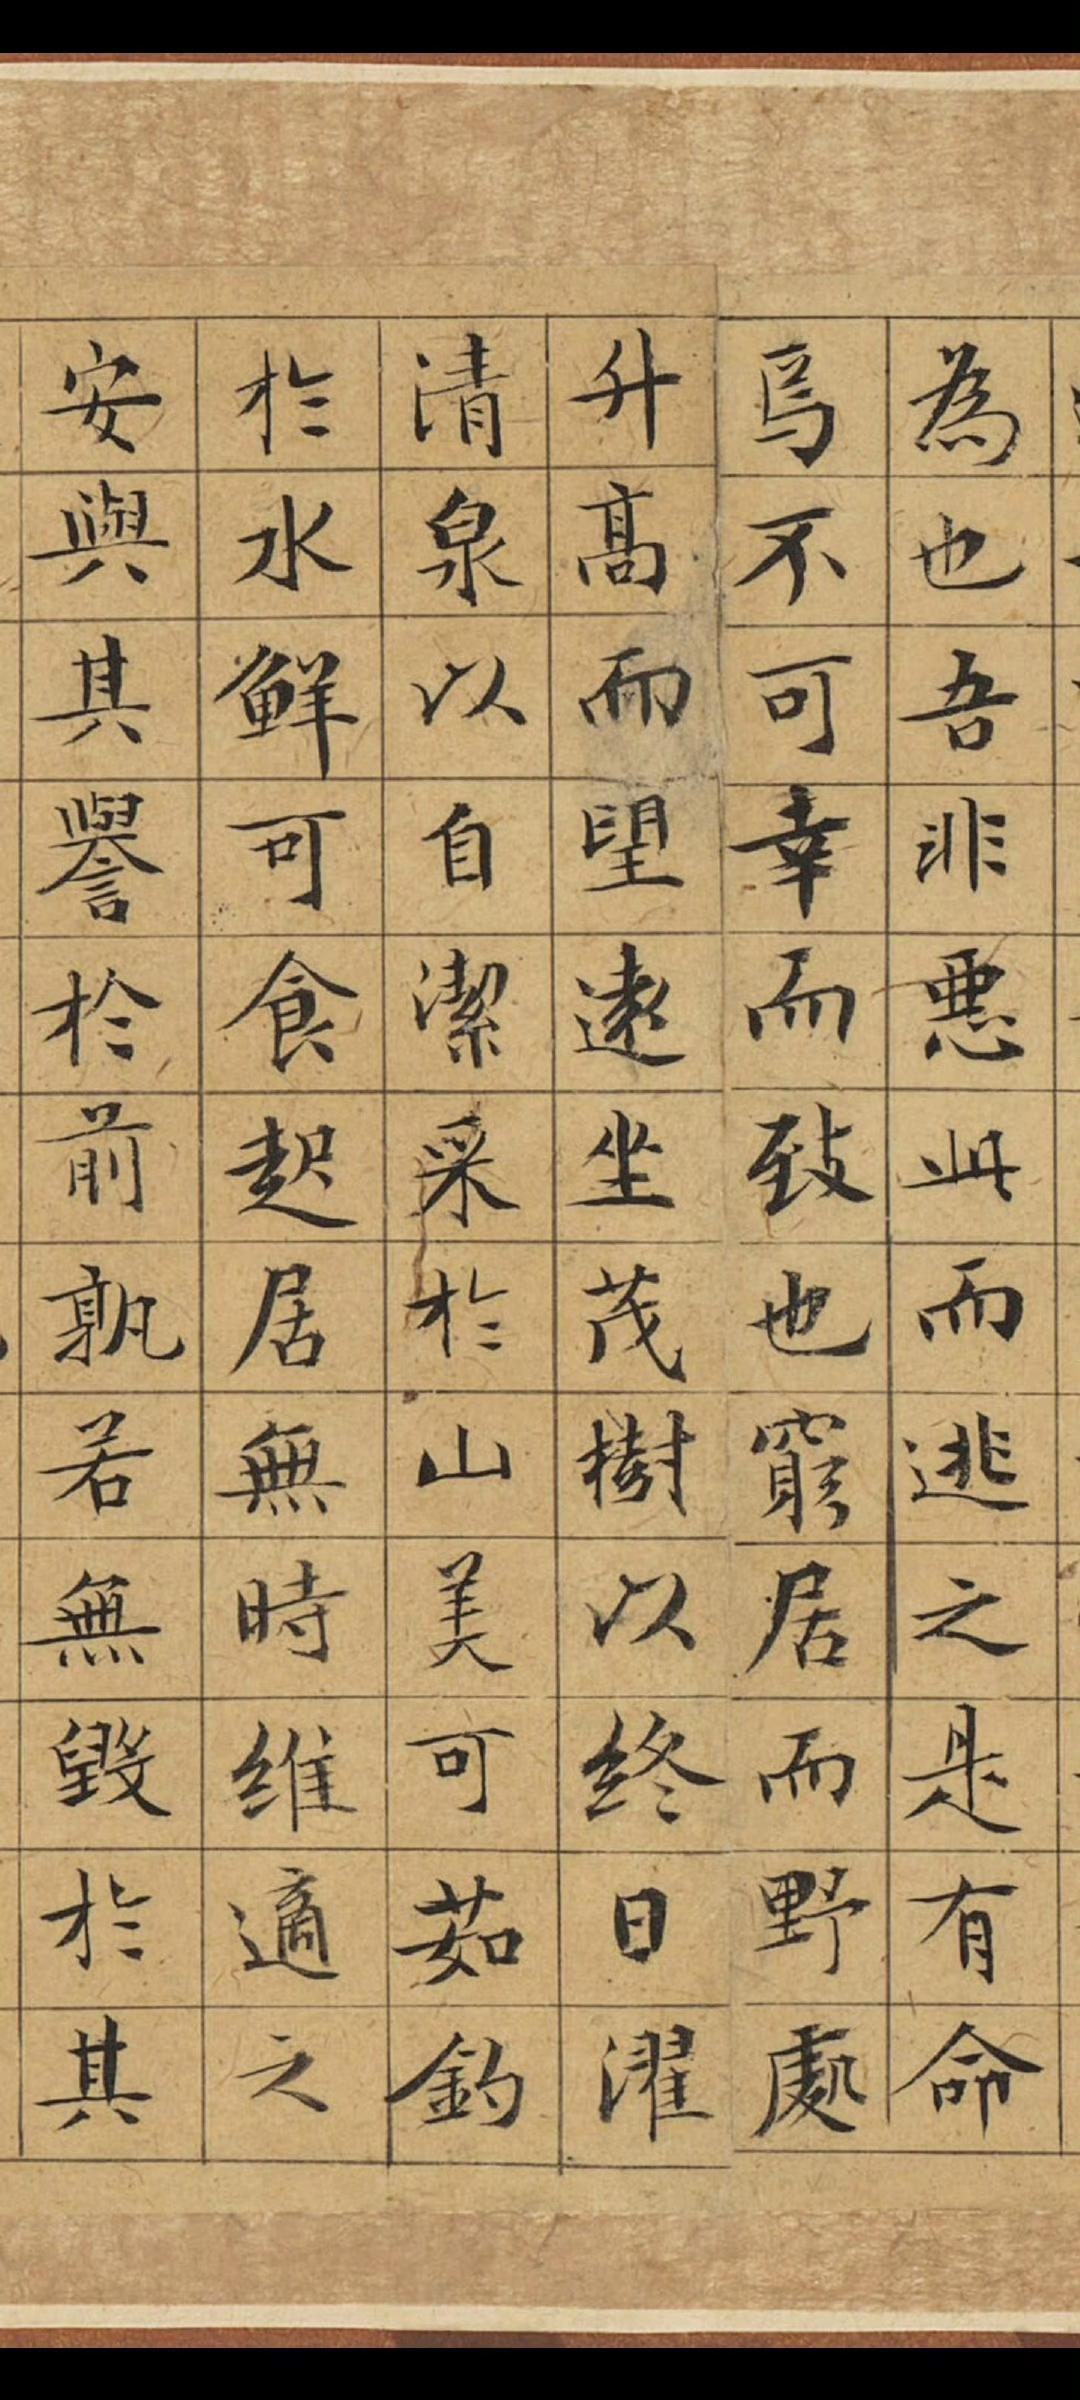 為也吾非惡此而逃之是有命
焉不可幸而致也窮居而野處
升高而望遠坐茂樹以終日濯
清泉以自潔采於山美可茹釣
於水鮮可食起居無時維適之
安與其譽於前孰若無毀於其